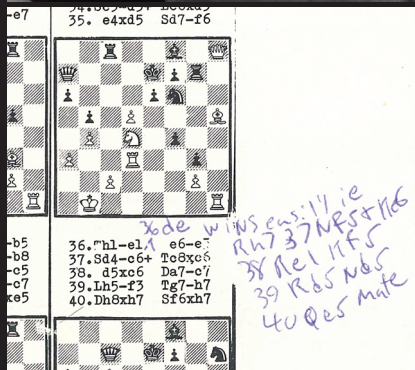 -e7
35. e4xd5 Sd7-f6
-b5
-b8
-c5
-c7
xe5
36.Th1-e1 e6-e5
37.Sd4-c6+ Tc8xc6
38. d5xc6 Da7-c7
39.Lh5-f3 Tg7-h7
40.Dh8xh7 Sf6xh7
36de wins easily ie
Rh7 37 Nf5+ Kd6
38 Re1 Kf5
39 Rd5 Nd5
40 Qe5 Mate